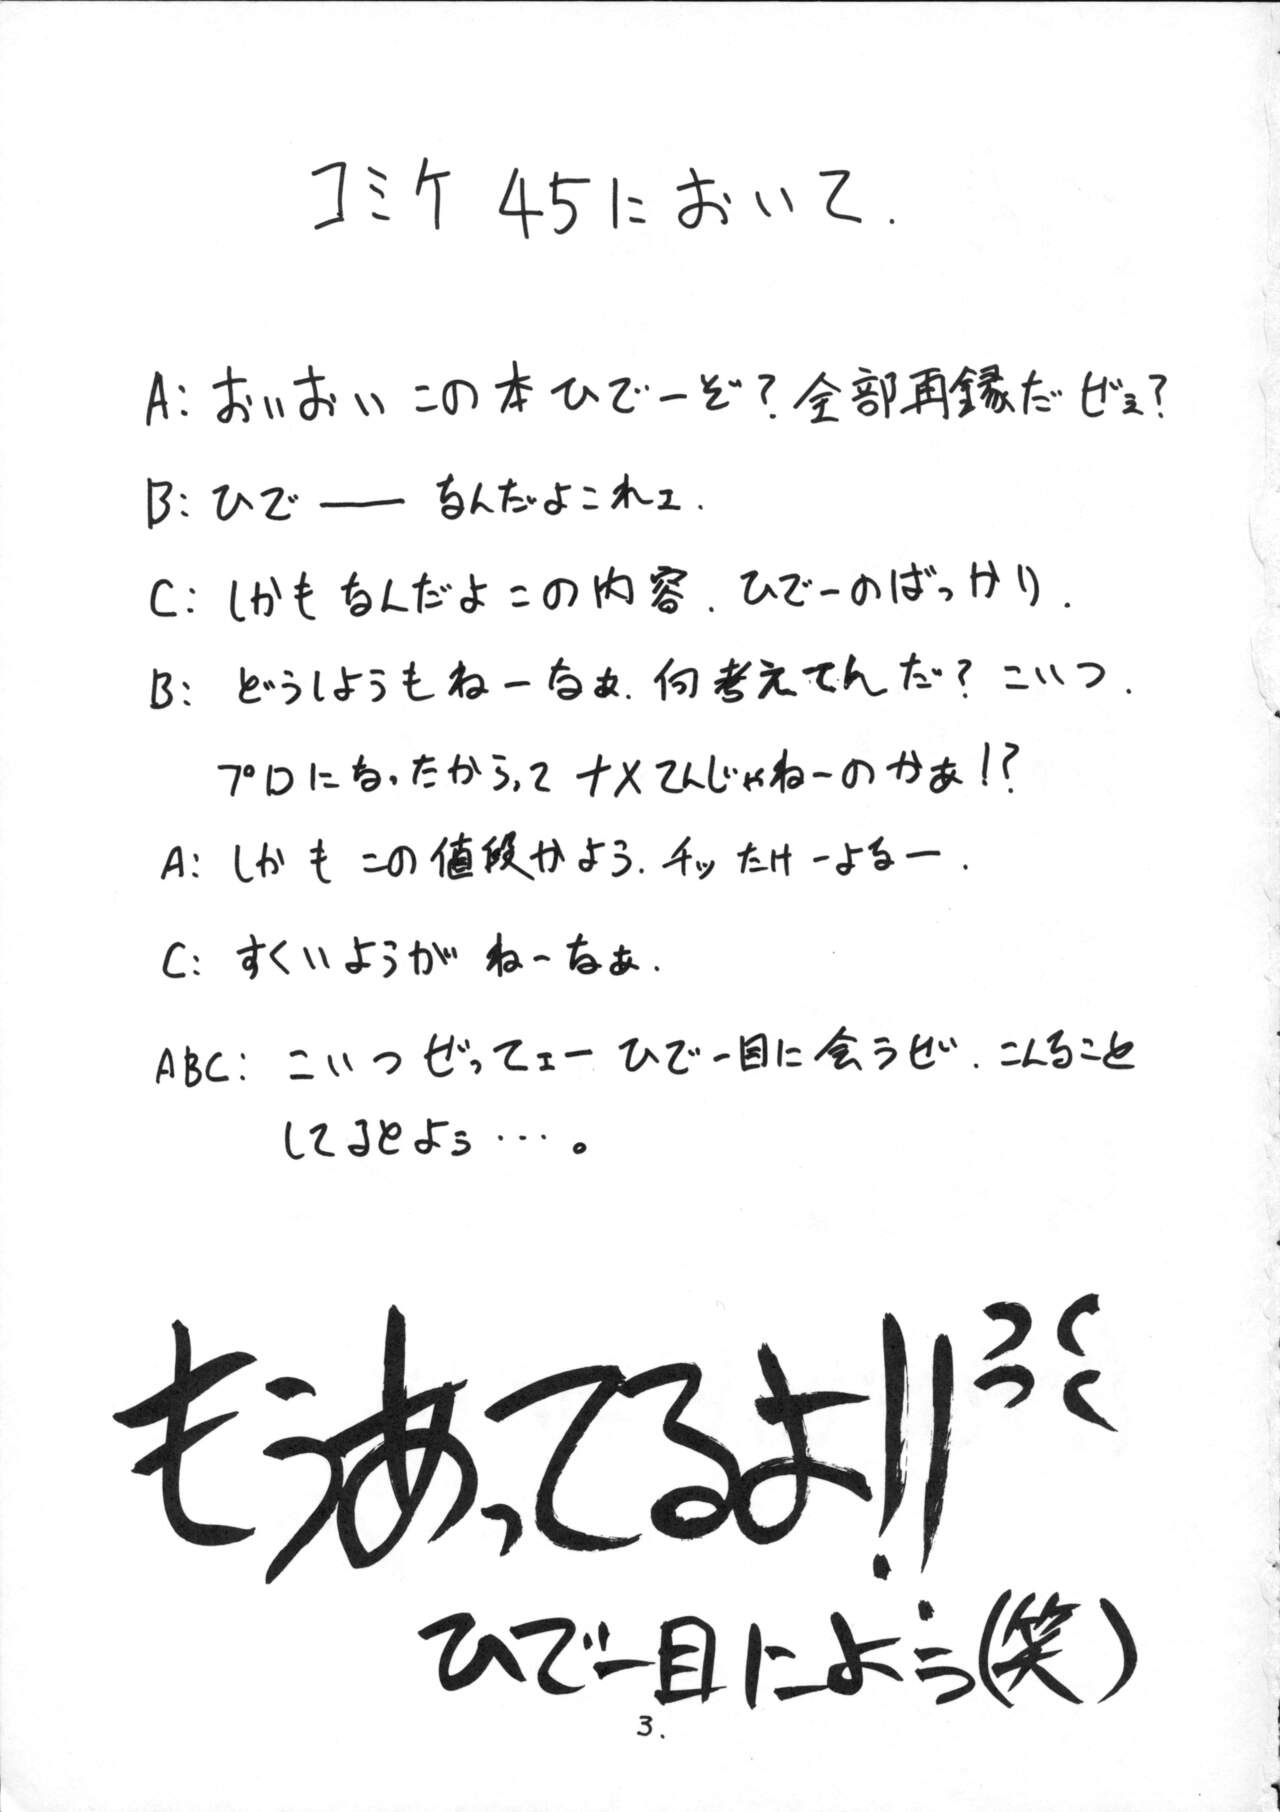 コミケ 45において.
A: おいおい この本ひでーぞ? 全部再録だぜぇ?
B: ひで── なんだよこれェ.
C: しかもなんだよこの内容. ひでーのばっかり.
B: どうしようもねーなぁ. 何考えてんだ? こいつ.
プロになったからって ナメてんじゃねーのかぁ!?
A: しかもこの値段かよう. チッ たけーよなー.
C: すくいようが ねーなぁ.
ABC: こいつ ぜってェー ひでー目に会うぜ. こんなこと
してるとよぅ…。
もうあってるよ!!
ひでー目によう(笑)
3.